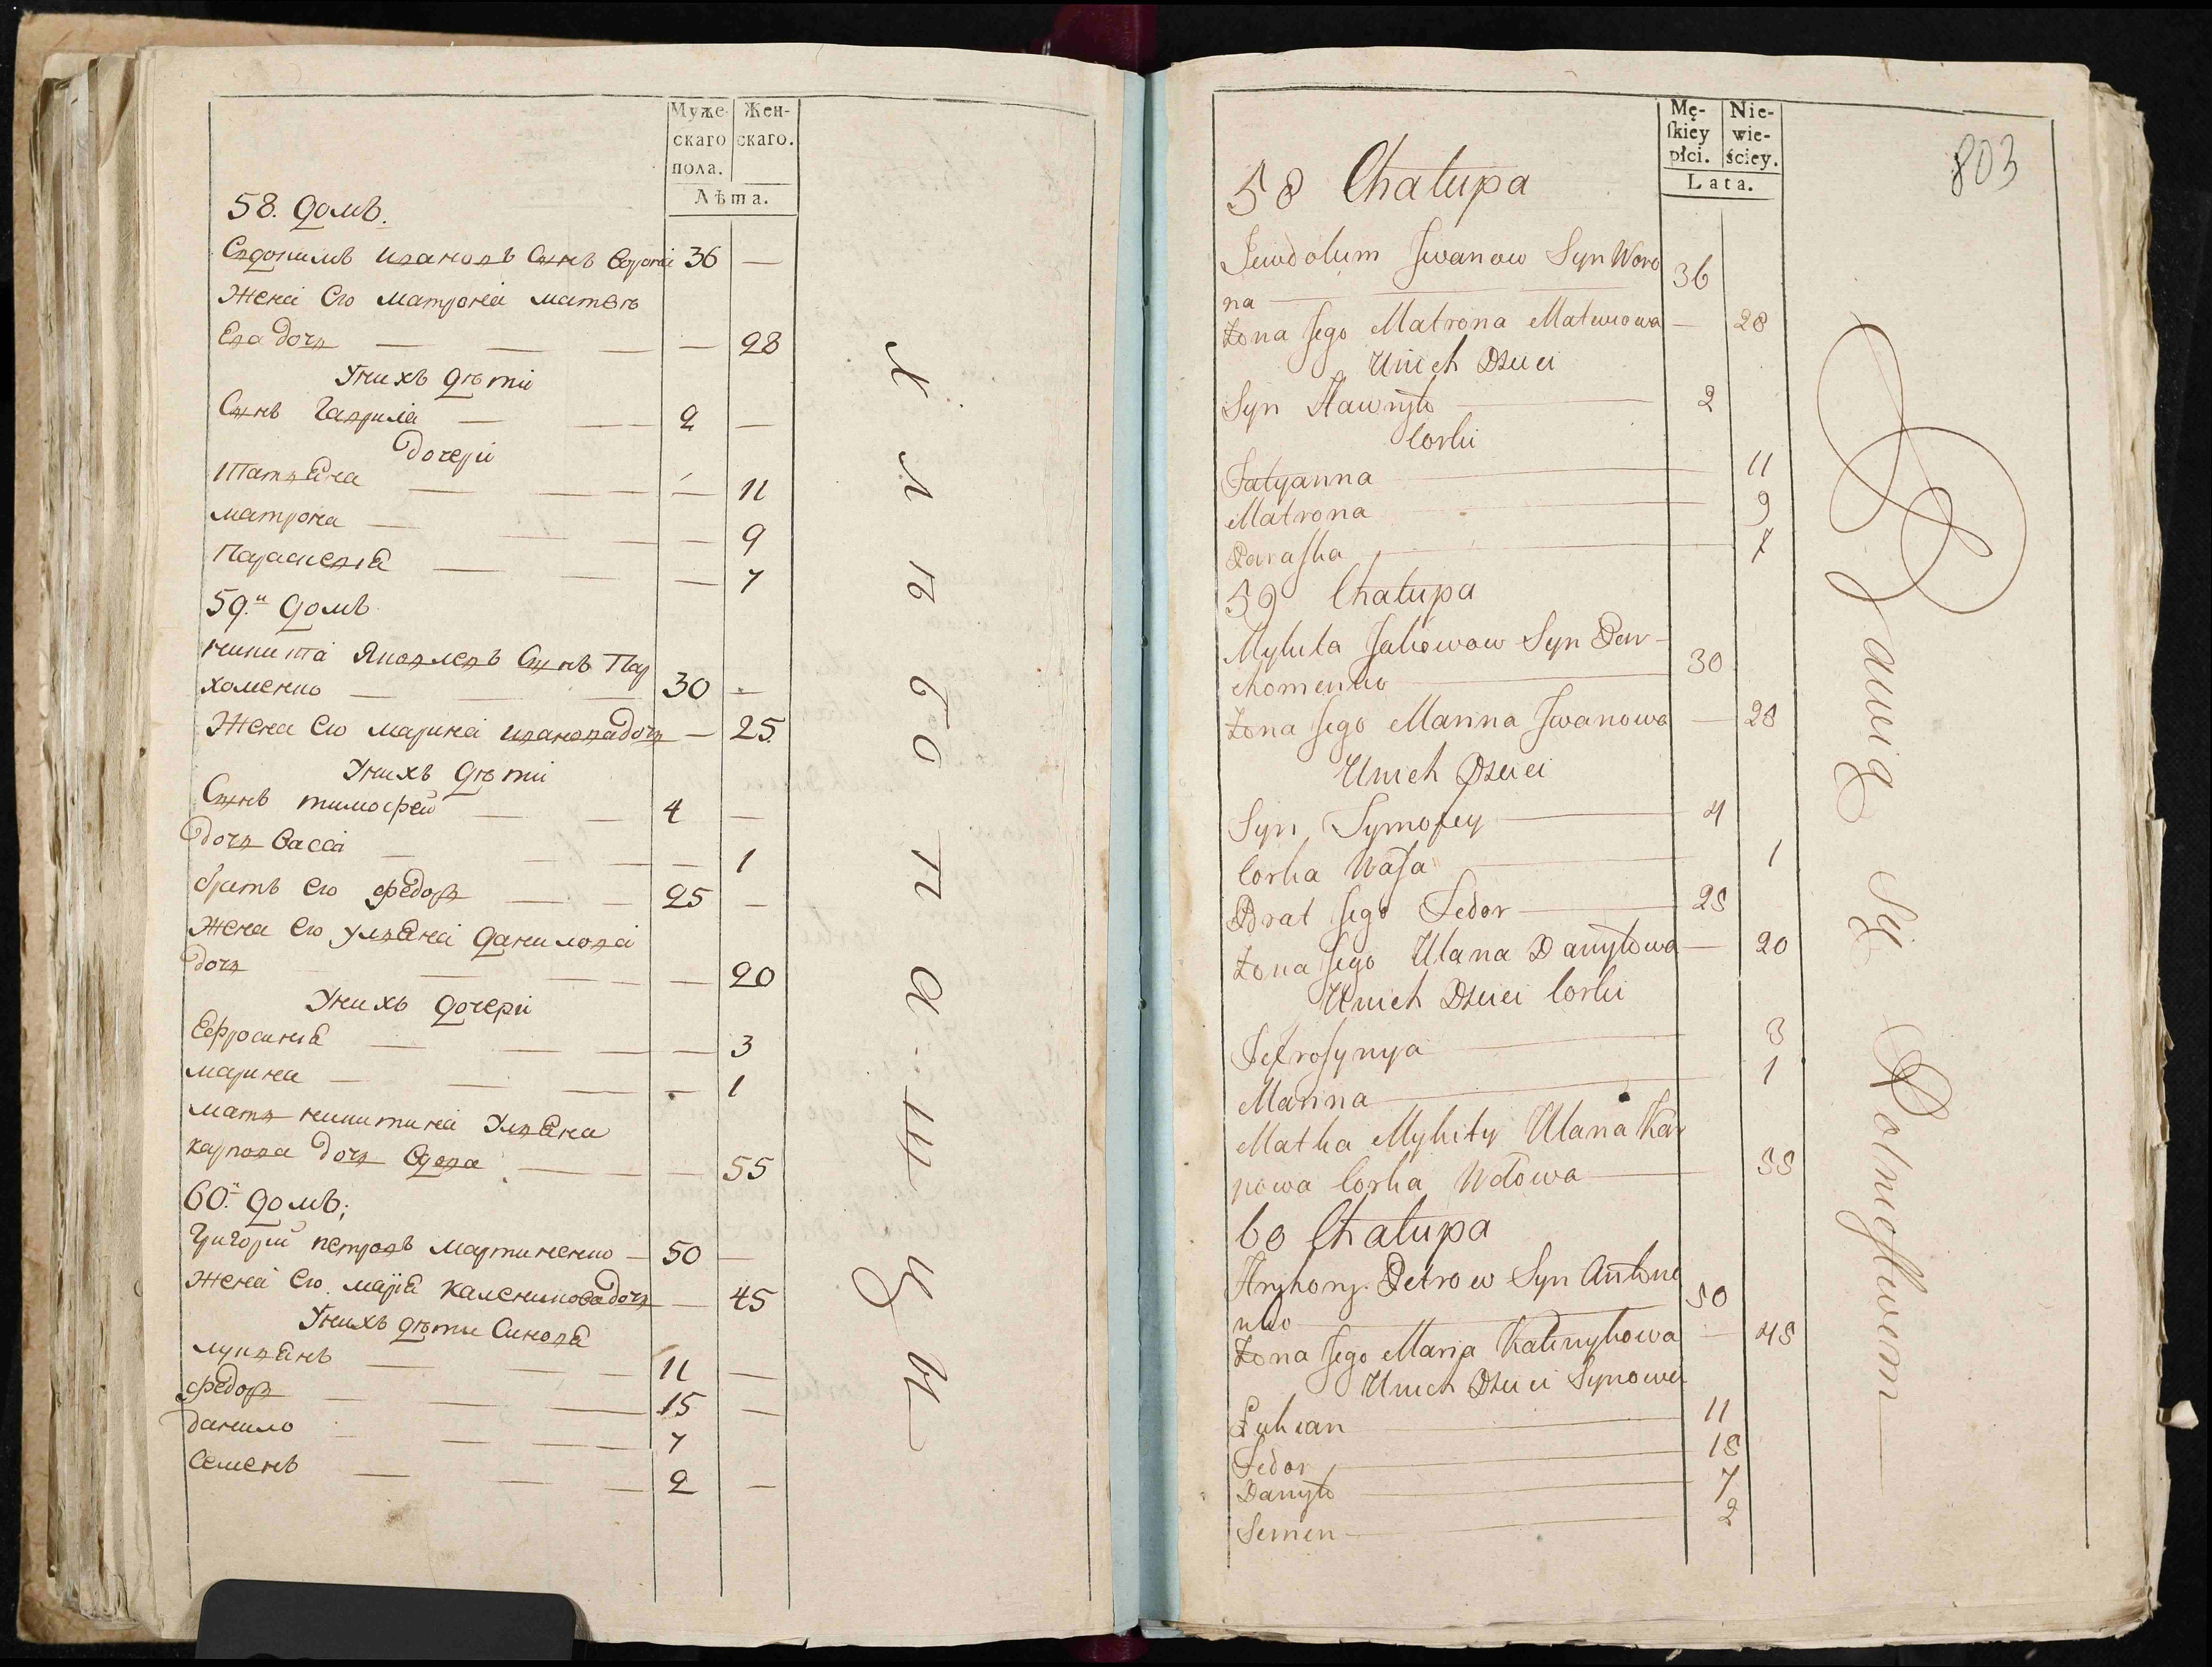 Муже-
скаго
пола.
Жен-
скаго.
Лѣта.
58. домъ.
Евдокимъ Ивановъ Сынъ Ворона 36 —
Жена Его Матрона Матвѣ
Ева дочь — — — — 28
У нихъ дѣти
Сынъ Гаврила — — 2 —
дочери
Татьяна — — — 11
Матрона — — — 9
Параскевія — — — 7
59.й домъ
Никита Яковлевъ Сынъ Пар
хоменко — — 30 —
Жена Его Марина Иванова дочь — 25
У нихъ дѣти
Сынъ Тимофей — — 4 —
дочь Васса — — — — 1
братъ Его Федоръ — — 25 —
Жена Его Ульяна Данилова
дочь — — — 20
У нихъ дочери
Ефросинья — — — — 3
Марина — — — — 1
Мать Никитина Ульяна
Карпова дочь Вдова — — — 55
60.й домъ;
Григорій Петровъ Мартиненко — 50 —
Жена Его Марія Каленикова дочь — 45
У нихъ дѣти Синовья
Лукьянъ — — 11 —
Федоръ — — 15 —
Данило — — — 7
Семенъ — — — 2 —
Хлѣбопашцы
Mę-
skiey
płci.
Nie-
wie-
ściey.
Lata.
803
58 Chałupa
Jewdokim Jwanow Syn Woro
na — 36
Żona Jego Matrona Matwiowa — 28
Unich Dzieci
Syn Hawryło — 2
Corki
Tatyanna — 11
Matrona — 9
Paraska — 7
59 Chałupa
Mykita Jakowow Syn Par-
chomenko — 30
Żona Jego Marina Jwanowa — 28
Unich Dzieci
Syn Tymofey — 4
Corka Wasa — 1
Brat Jego Fedor — 25
Żona Jego Ulana Danyłowa — 20
Unich Dzieci Corki
Jefrosynya — 3
Marina — 1
Matka Mykity Ulana Kar
powa Corka Wdowa — 55
60 Chałupa
Hryhory Petrow Syn
nko — 50
Żona Jego Marya Kalenykowa — 45
Unich Dzieci Synowie
Łukian — 11
Fedor — 15
Danyło — 7
Semen — 2
Bawią Się Rolnictwem